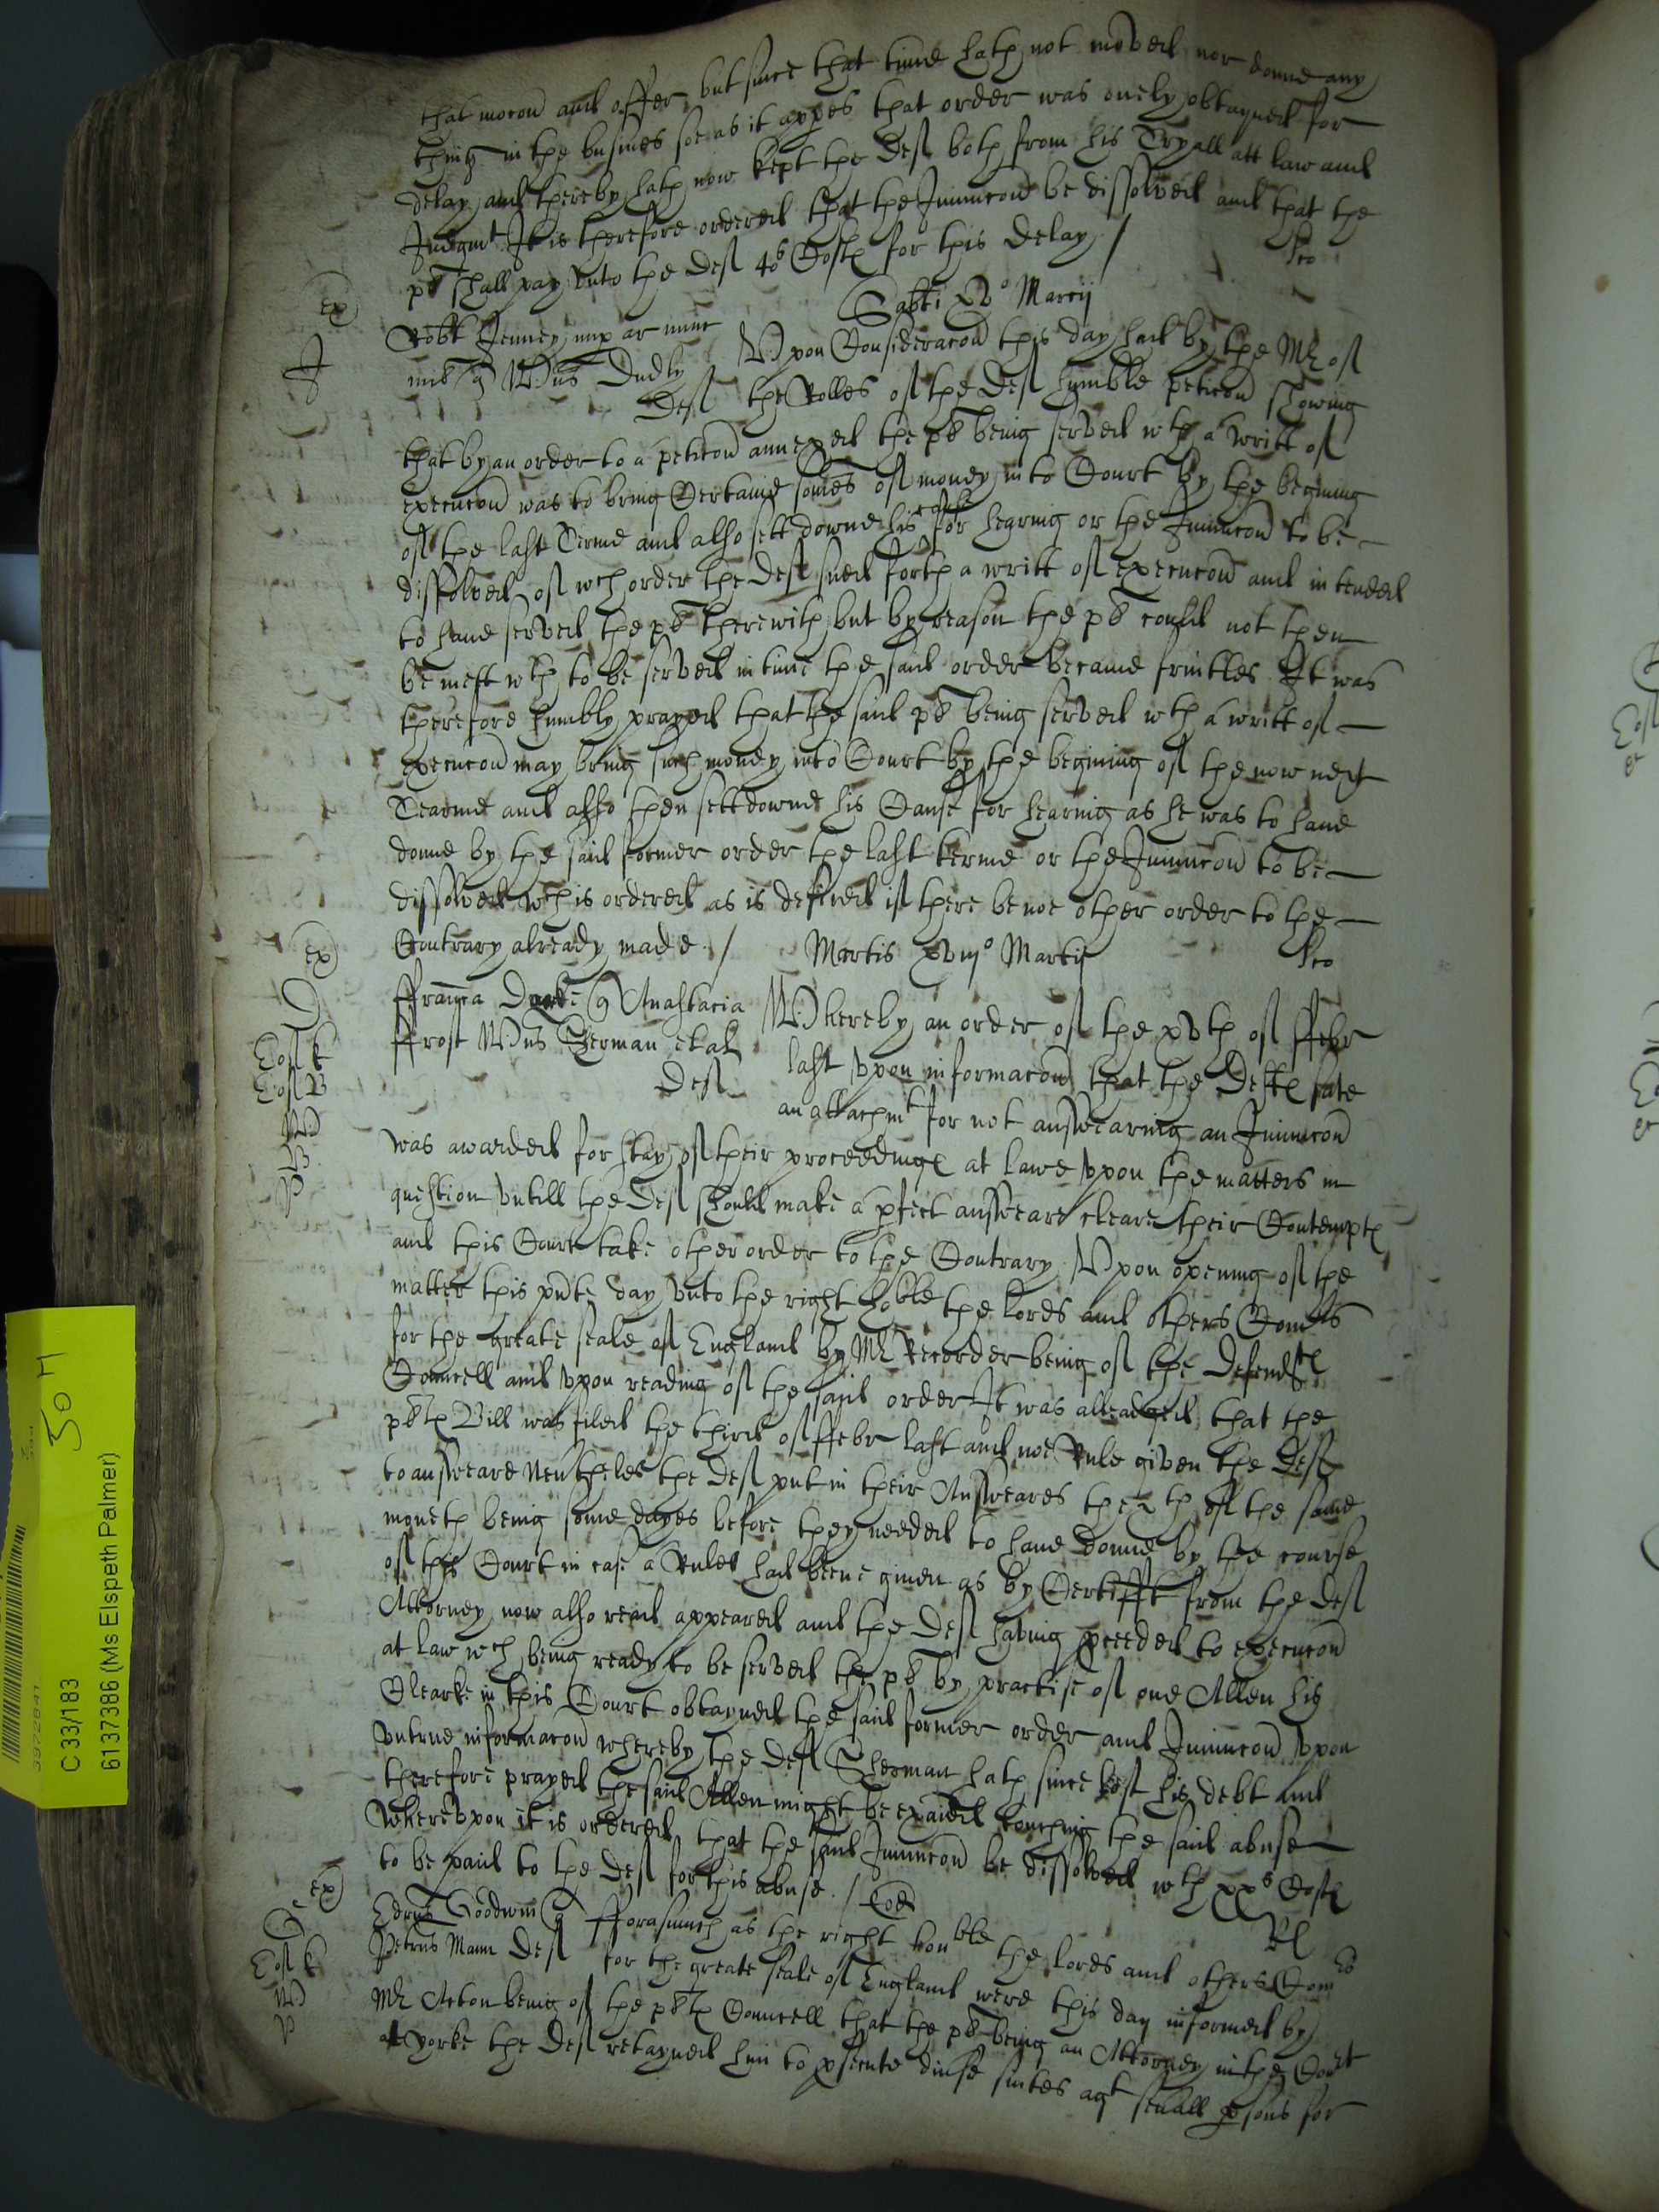 that mocon and offer but since that time hath not moved nor donne any
thing in the busines soe as it appes that order was onely obtayned for
delay and thereby hath now kept the Deft both from his Tryall att law and
Judgmt It is therefore ordered that the Iniunccon be dissolved and that the
plt shall pay vnto the Deft 40s Costs for this delay /
Sabti xv° Marcij
ex
Robt Jenney
quer Willus Dudly Vpon Consideracon this day had by the Mr of
Deft the Rolles of the Deft humble peticon showing
that by an order to a peticon annexed the plt being served wth a writt of
execucon was to bring Certaine somes of money into Court by the begining
of the last Terme and also sett downe his cause for hearing or the Iniunccon to be
dissolved of wch order the Deft sued forth a writt of execucon and intended
to haue served the plt therewith but by reason the plt could not then
be mett wth to be served in time the said order became fruitles It was
therefore humbly prayed that the said plt being served wth a writt of
execucon may bring such money into Court by the begining of the now next
Tearme and also then sett downe his Cause for hearing as he was to haue
donne by the said former order the last terme or the Iniunccon to be
dissolved wch is ordered as is desired if there be noe other order to the
Contrary already made /
Martis xviij° Martij
ex
Anastacia Whereby an order of the xvth of ffebr
ffrost Willus Sherman et al last vpon informacon that the Defts sate
Deft an attachmt for not answearing an Iniunccon
was awarded for stay of their proceedings at lawe vpon the matters in
question vntill the Deft should make a pfect answeare cleare their Contempts
and this Court take other order to the Contrary Vpon opening of the
matter this pnte day vnto the right hoble the lords and others Comrs
for the greate seale of England by Mr Recorder being of the Defendts
Councell and vpon reading of the said order It was alleadged that the
plts Bill was filed the third of ffebr last and noe Rule given the Deft
to answeare Neutheles the Deft put in their Answeares the xth of the same
moneth being some dayes before they needed to haue donne by the course
of this Court in case a Rules had beene giuen as by Certifft from the Deft
Attorney now also read appeared and the Deft having pceeded to execucon
at law wch being ready to be served the plt by practise of one Allen his
Clearke in this Court obtayned the said former order and Iniunccon vpon
vntrue informacon whereby the Deft Sherman hath since lost his debt and
therefore prayed the said Allen might be exaied touching the said abuse
Wherevpon it is ordered that the said Iniunccon be dissolved wth xxs Costs
to be paid to the Deft for this abuse / Eod
ex
Edrus Goodwin q fforasmuch as the right honble the lords and others Comrs
Petrus Mann Deft for the greate seale of England were this day informed by
Mr Acton being of the plts Councell that the plt being an Attorney in the Cort
at yorke the Deft retayned him to psecute diuse suites agt seuall psons for
C 33/183
6137386 (Ms Elspeth Palmer)